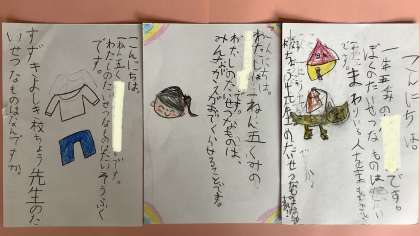 こんにちは。
一年五くみの
です。
ぼくのたいせつなものは
まわりにいる人
先生のたいせつなもの
こんにちは。
一ねん五くみの
です。
わたしのたいせつなものは、
みんながえがおでくらせることです。
こんにちは。
一ねん五くみ
です。
わたしのたいせつなものはたいそうふく
です。
すずきよしき校ちょう先生のた
いせつなものはなんですか。